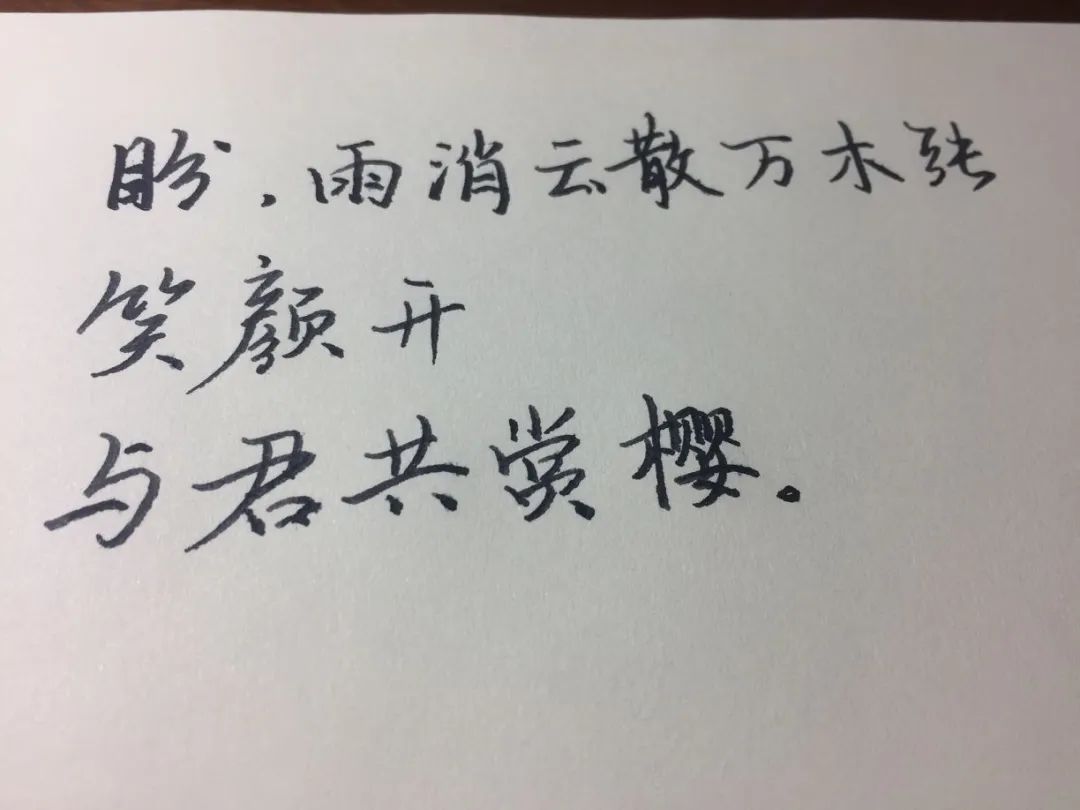 盼，雨消云散万木张
笑颜开
与君共赏樱。